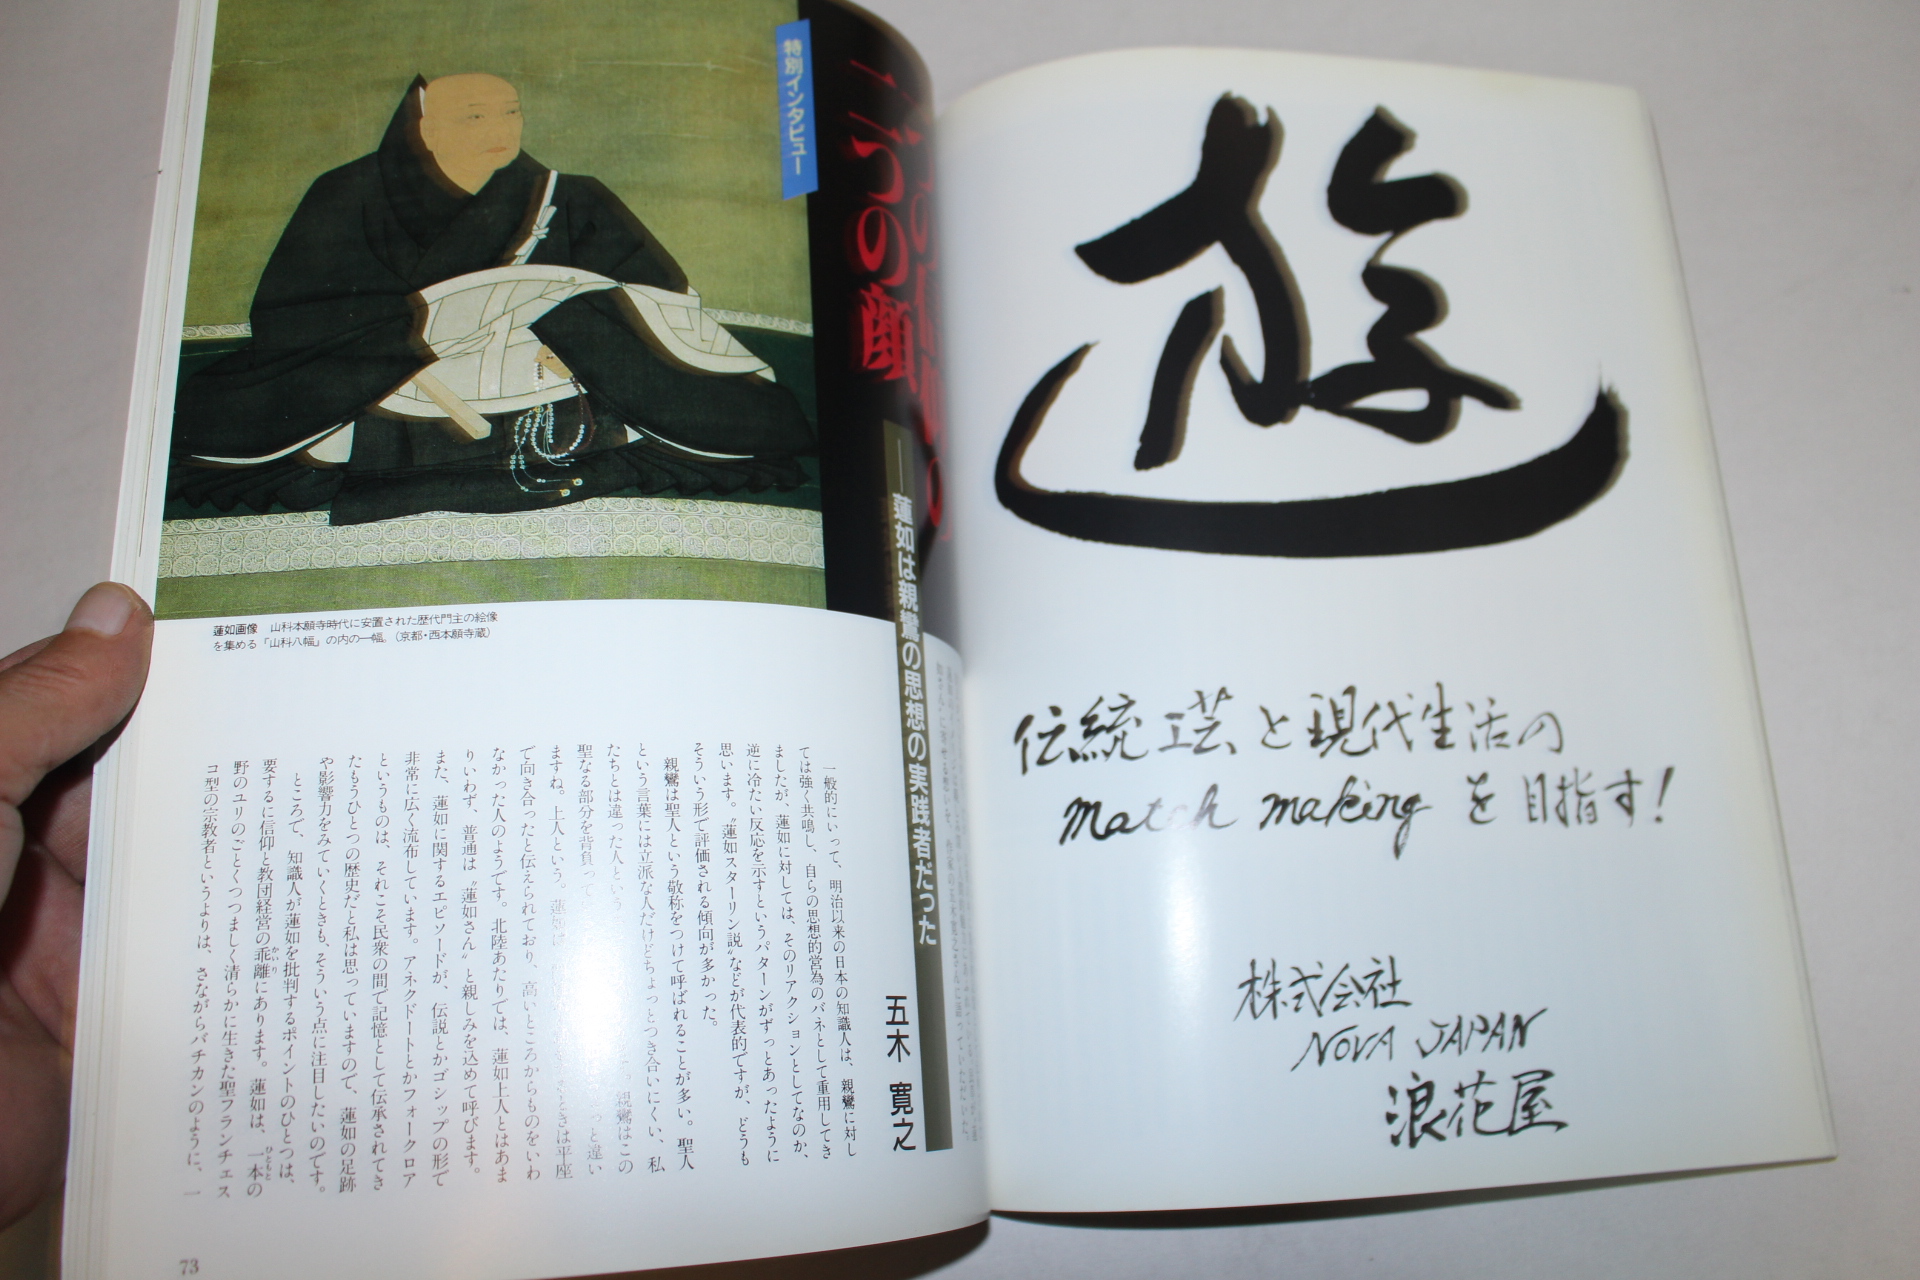 遊
伝統工芸と現代生活の
Match makingを目指す!
株式会社
NOVA JAPAN
浪花屋
特別インタビュー
二つの顔
──蓮如は親鸞の思想の実践者だった
五木 寛之
蓮如画像 山科本願寺時代に安置された歴代門主の絵像
を集める「山科八幅」の内の一幅。(京都・西本願寺蔵)
一般的にいって、明治以来の日本の知識人は、親鸞に対し
ては強く共鳴し、自らの思想的営為のバネとして重用してき
ましたが、蓮如に対しては、そのリアクションとしてなのか、
逆に冷たい反応を示すというパターンがずっとあったように
思います。〝蓮如スターリン説〟などが代表的ですが、どうも
そういう形で評価される傾向が多かった。
親鸞は聖人という敬称をつけて呼ばれることが多い。聖人
という言葉には立派な人だけどちょっとつき合いにくい、私
たちとは違った人という 親鸞はこの
聖なる部分を背負って と違い
ますね。上人という。蓮如は ときは平座
で向き合ったと伝えられており、高いところからものをいわ
なかった人のようです。北陸あたりでは、蓮如上人とはあま
りいわず、普通は〝蓮如さん〟と親しみを込めて呼びます。
また、蓮如に関するエピソードが、伝説とかゴシップの形で
非常に広く流布しています。アネクドートとかフォークロア
というものは、それこそ民衆の間で記憶として伝承されてき
たもうひとつの歴史だと私は思っていますので、蓮如の足跡
や影響力をみていくときも、そういう点に注目したいのです。
ところで、知識人が蓮如を批判するポイントのひとつは、
要するに信仰と教団経営の乖離(かいり)にあります。蓮如は、一本(ひともと)の
野のユリのごとくつつましく清らかに生きた聖フランチェス
コ型の宗教者というよりは、さながらバチカンのように、一
73